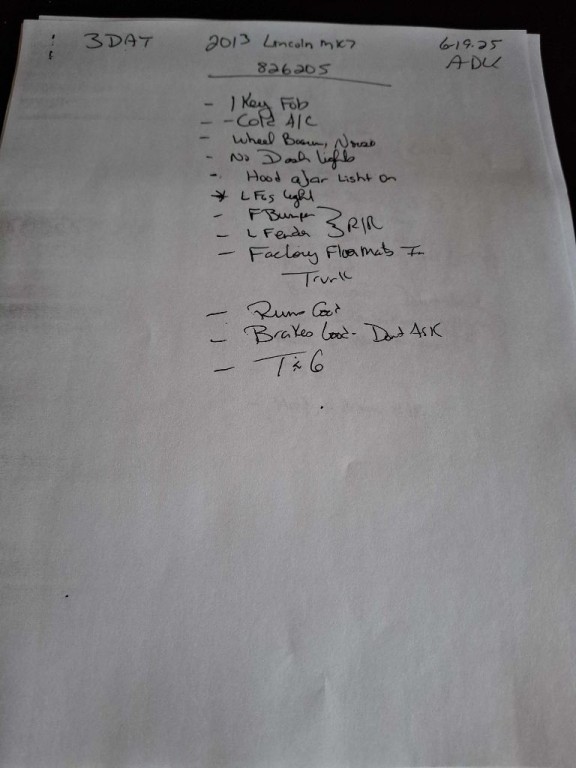 3 DAY 2013 Lincoln MKZ 6.19.25
826205 ADU
- 1 Key Fob
- - Cold A/C
- Wheel Noise
- No Dash Lights
- Hood ajar Light on
* L Fog Light
- F Bumper } R/R
- L Fender
- Factory Floormats In
Trunk
- Runs Good
- Brakes Good - Dont Ask
- 6